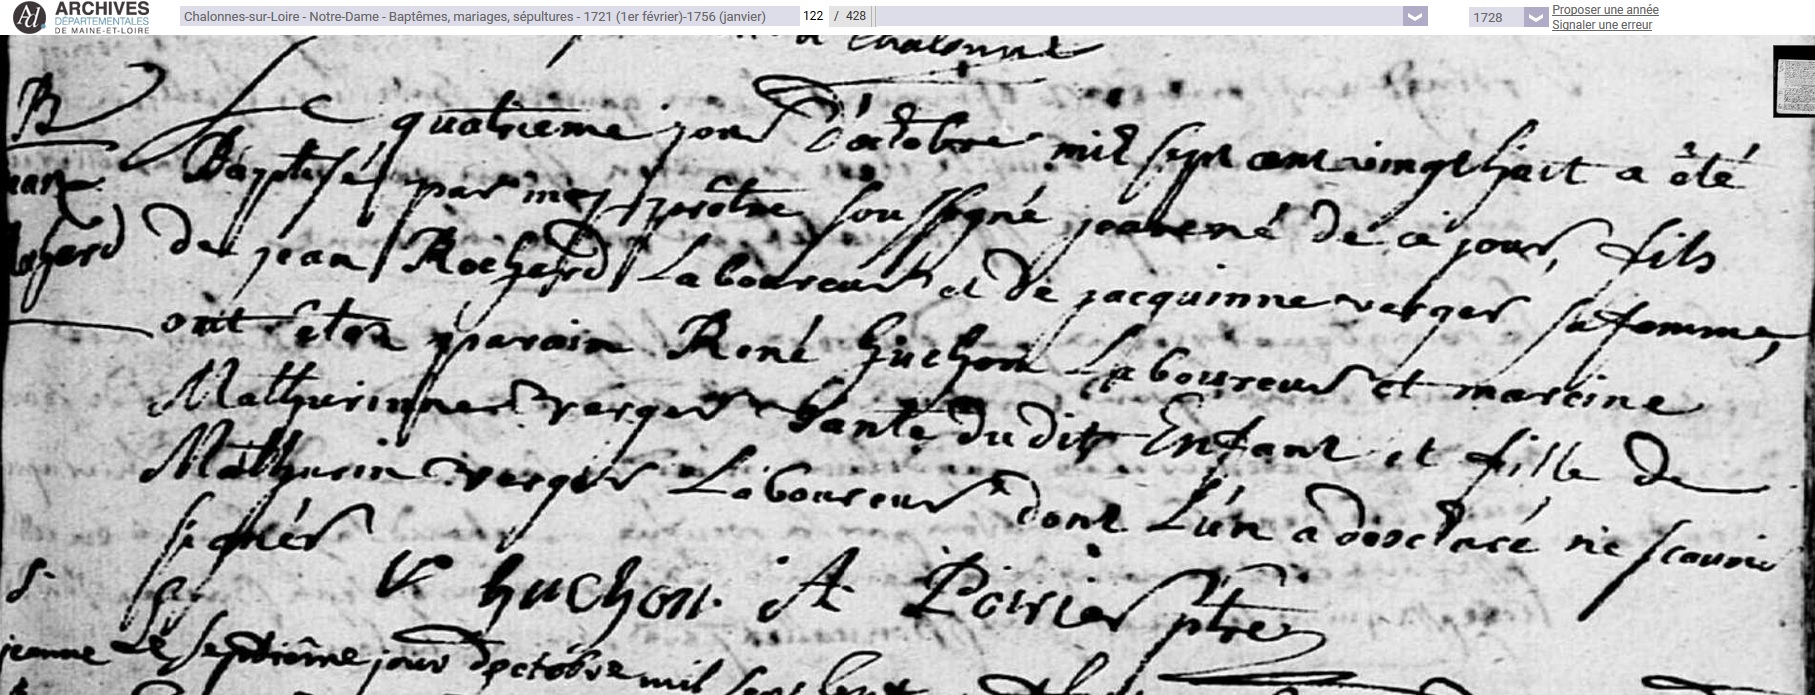 ARCHIVES
DÉPARTEMENTALES
DE MAINE-ET-LOIRE
Chalonnes-sur-Loire - Notre-Dame - Baptêmes, mariages, sépultures - 1721 (1er février)-1756 (janvier)
122 / 428
1728
Proposer une année
Signaler une erreur
Chalonne
B
Le quatrieme jour d'octobre mil sept cent vingt huit a été
Baptisé par moy prêtre soussigné jean né de ce jour, fils
de jean Rochard Laboureur et de jacquinne verger sa femme,
ont été parain René huchon Laboureur et maraine
Mathurinne verger tante dudit Enfant et fille de
Mathurin verger Laboureur dont L'un a déclaré ne scavoir
signer
R huchon A Poirier ptre
S
jeanne
Le septième jour d'octobre mil sept cent